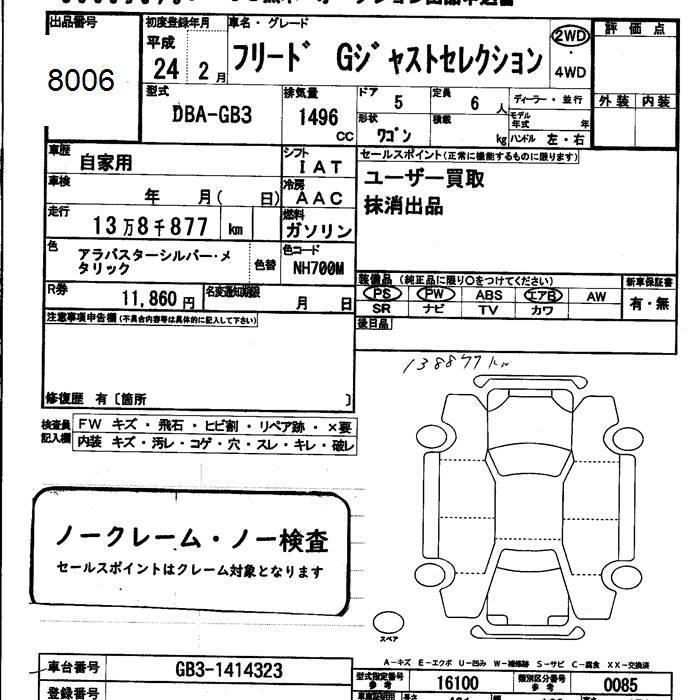 出品番号
8006
初度登録年月
平成
24 2 月
車名・グレード
フリード Gジャストセレクション
2WD
・
4WD
評価点
外装 内装
型式
DBA-GB3
排気量
1496
CC
ドア
5
定員
6 人
ディーラー・並行
形状
ワゴン
積載
kg
モデル
年式 年
ハンドル 左・右
車歴
自家用
シフト
IAT
セールスポイント(正常に機能するものに限ります)
ユーザー買取
抹消出品
車検
年 月( 日)
冷房
AAC
走行
13万8千877 km
燃料
ガソリン
色
アラバスターシルバー・メ
タリック
色替
色コード
NH700M
装備品(純正品に限り○をつけてください)
PS PW ABS エアB AW
SR ナビ TV カワ
新車保証書
有・無
R券
11,860 円
名変通知期限
月 日
後日品
注意事項申告欄(不具合内容等は具体的に記入して下さい)
138877km
修復歴 有〔箇所 〕
検査員
記入欄
FW キズ・飛石・ヒビ割・リペア跡・×要
内装 キズ・汚レ・コゲ・穴・スレ・キレ・破レ
ノークレーム・ノー検査
セールスポイントはクレーム対象となります
スペア
A-キズ E-エクボ U-凹み W-補修跡 S-サビ C-腐食 XX-交換済
車台番号
GB3-1414323
型式指定番号
参考
16100
類別区分番号
参考
0085
登録番号